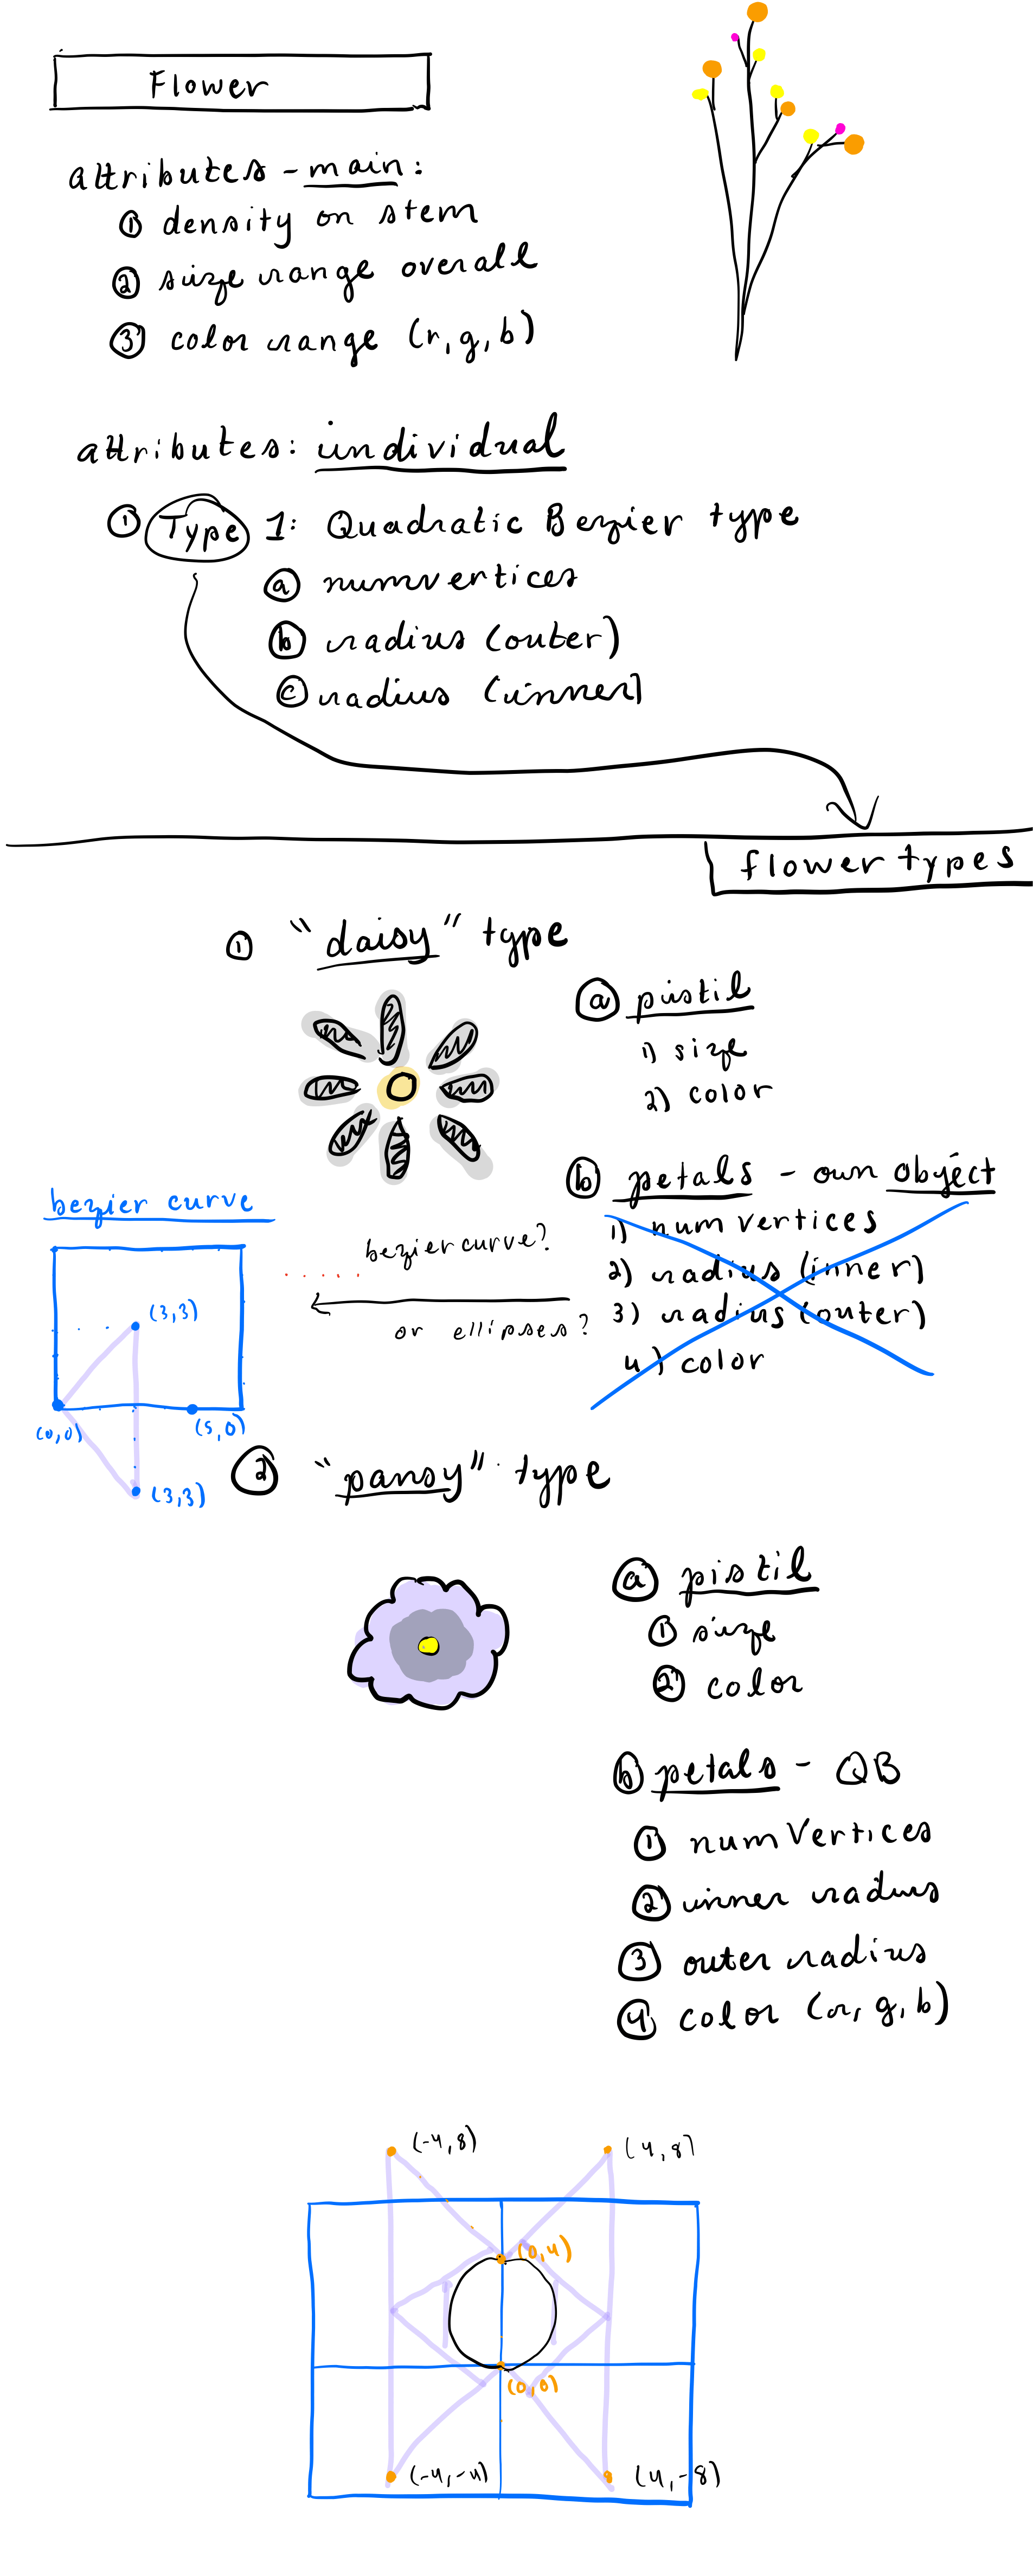 Flower
attributes - main:
① density on stem
② size range overall
③ color range (r, g, b)
attributes: individual
① Type 1: Quadratic Bezier type
ⓐ numvertices
ⓑ radius (outer)
ⓒ radius (inner)
flower types
① "daisy" type
ⓐ pistil
1) size
2) color
ⓑ petals - own object
1) num vertices
2) radius (inner)
3) radius (outer)
4) color
bezier curve?
or ellipses?
bezier curve
(3,3)
(0,0)
(5,0)
(3,3)
② "pansy" type
ⓐ pistil
① size
② color
ⓑ petals - QB
① num Vertices
② inner radius
③ outer radius
④ color (r, g, b)
(-4,8)
(4,8)
(0,4)
(0,0)
(-4,-4)
(4,-8)